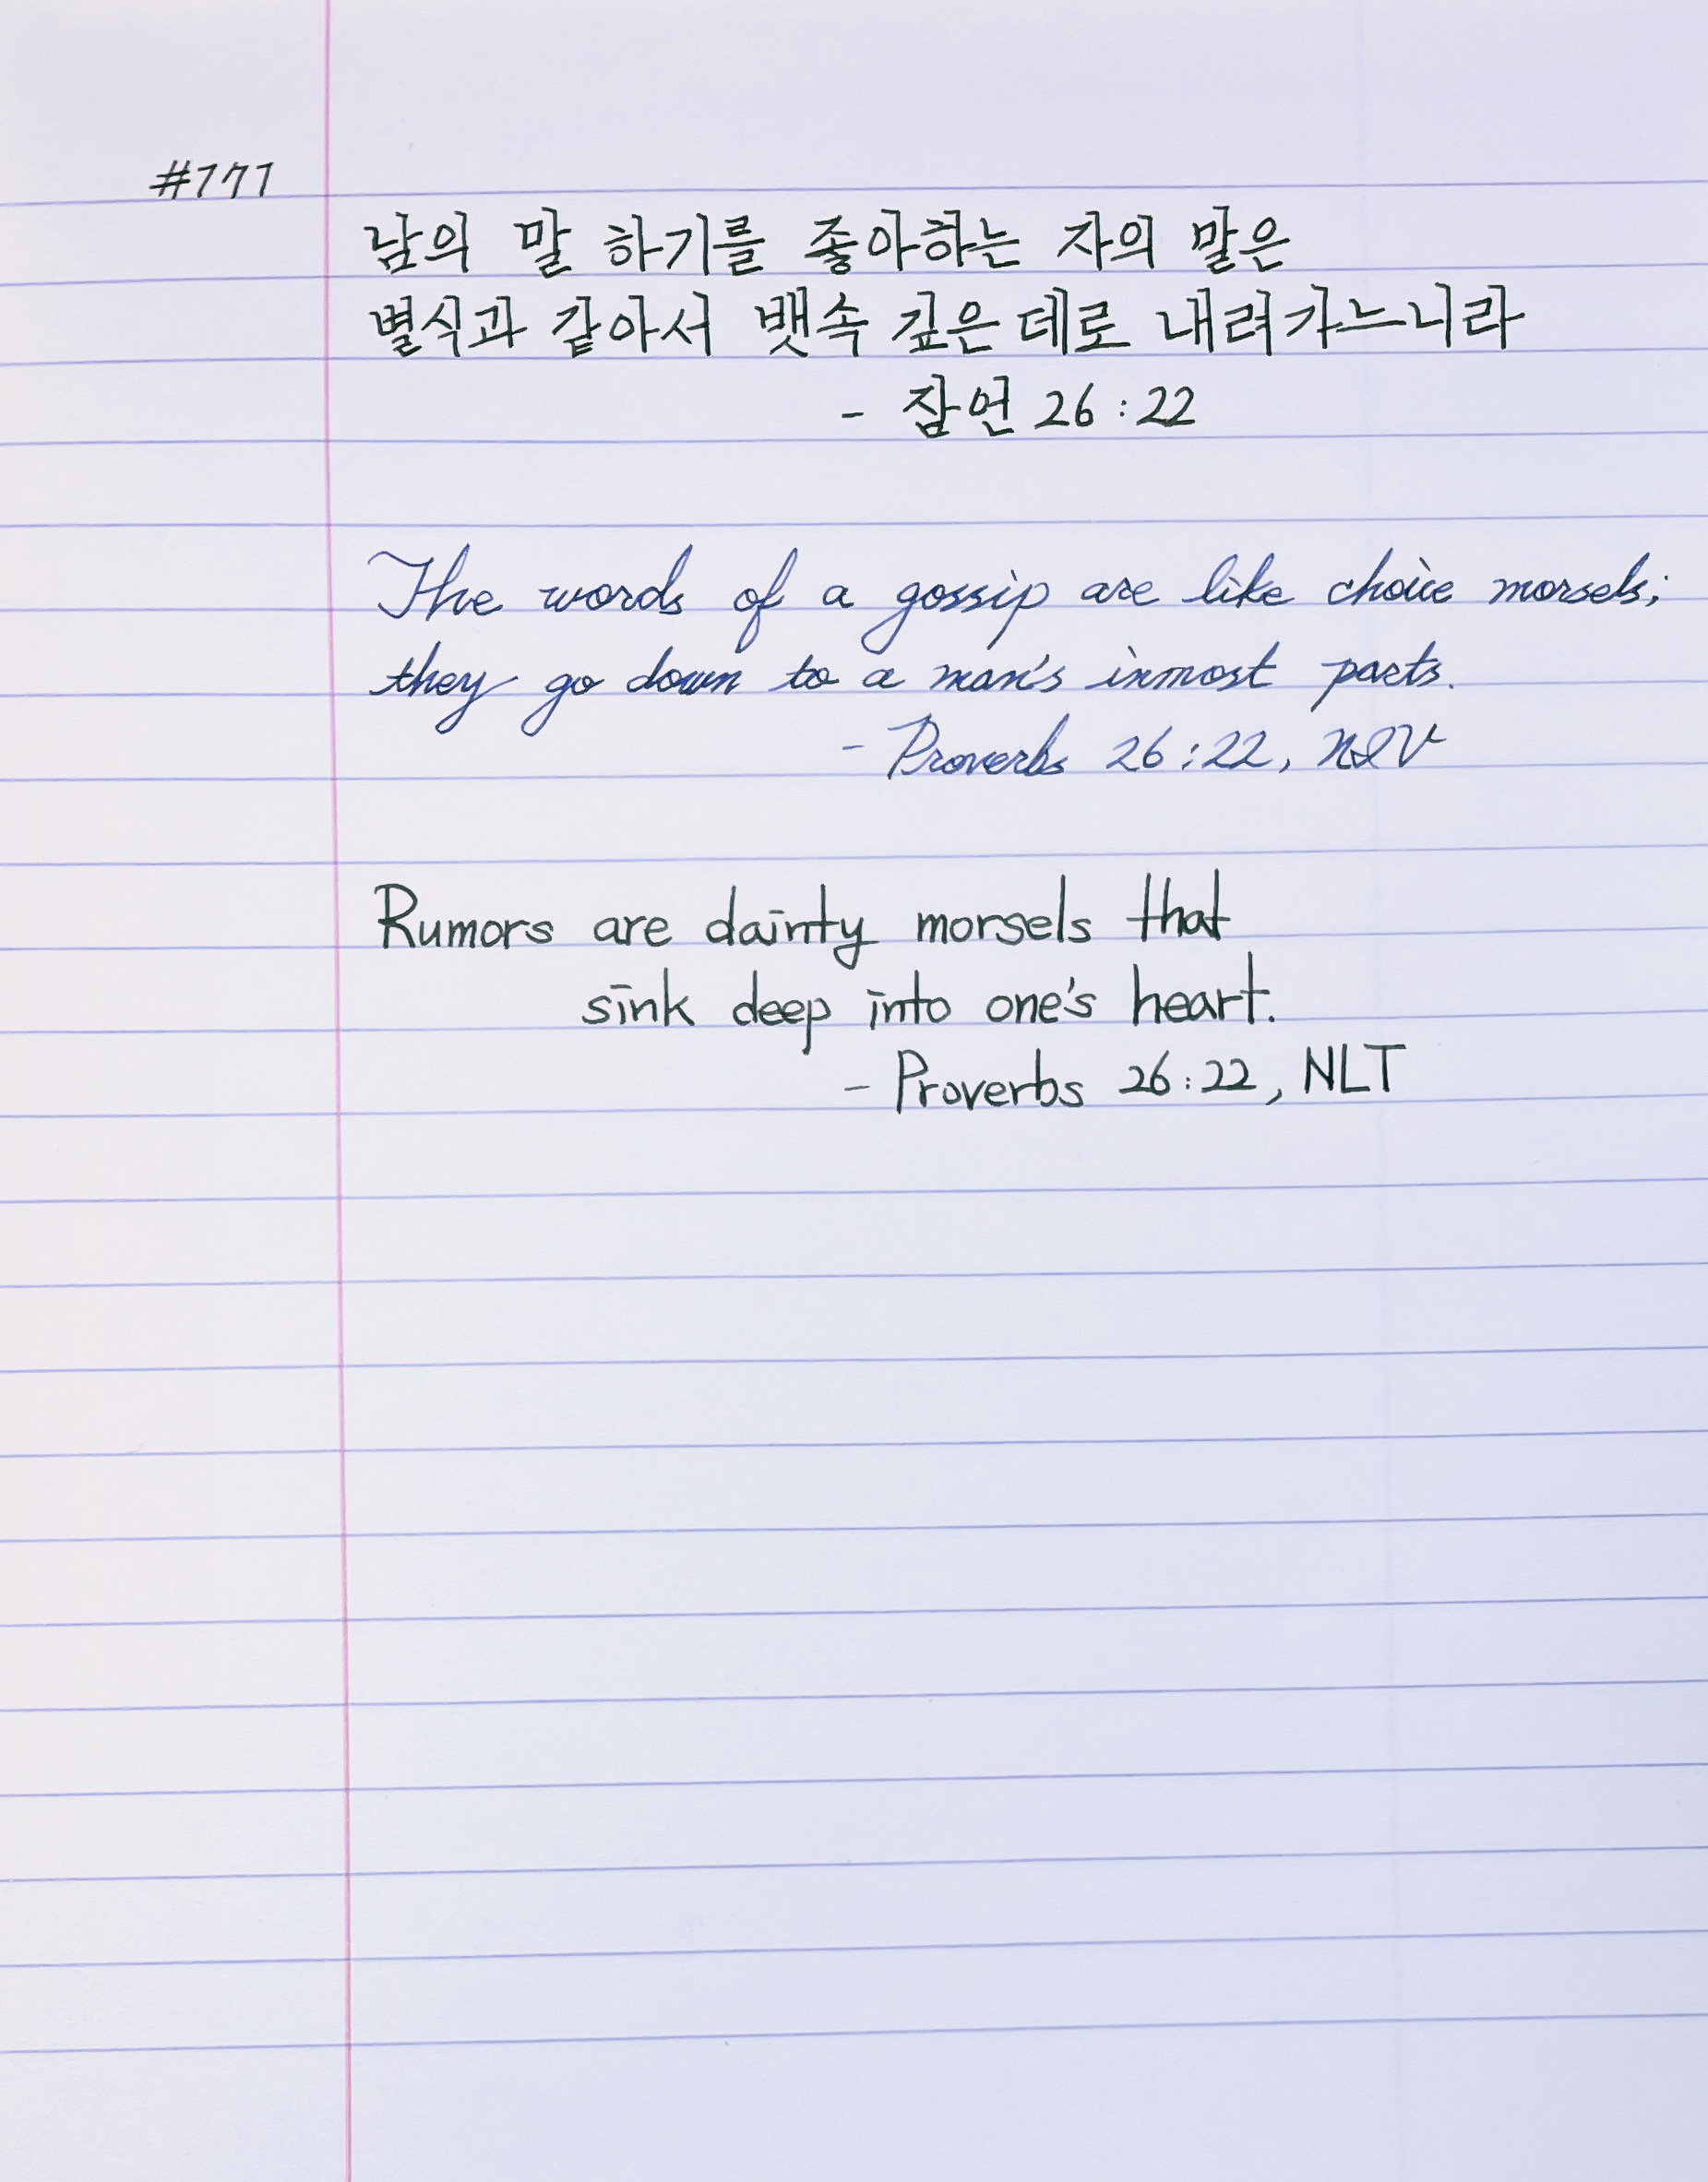 #777
남의 말 하기를 좋아하는 자의 말은
별식과 같아서 뱃속 깊은 데로 내려가느니라
- 잠언 26:22
The words of a gossip are like choice morsels;
they go down to a man's inmost parts.
- Proverbs 26:22, NIV
Rumors are dainty morsels that
sink deep into one's heart.
- Proverbs 26:22, NLT